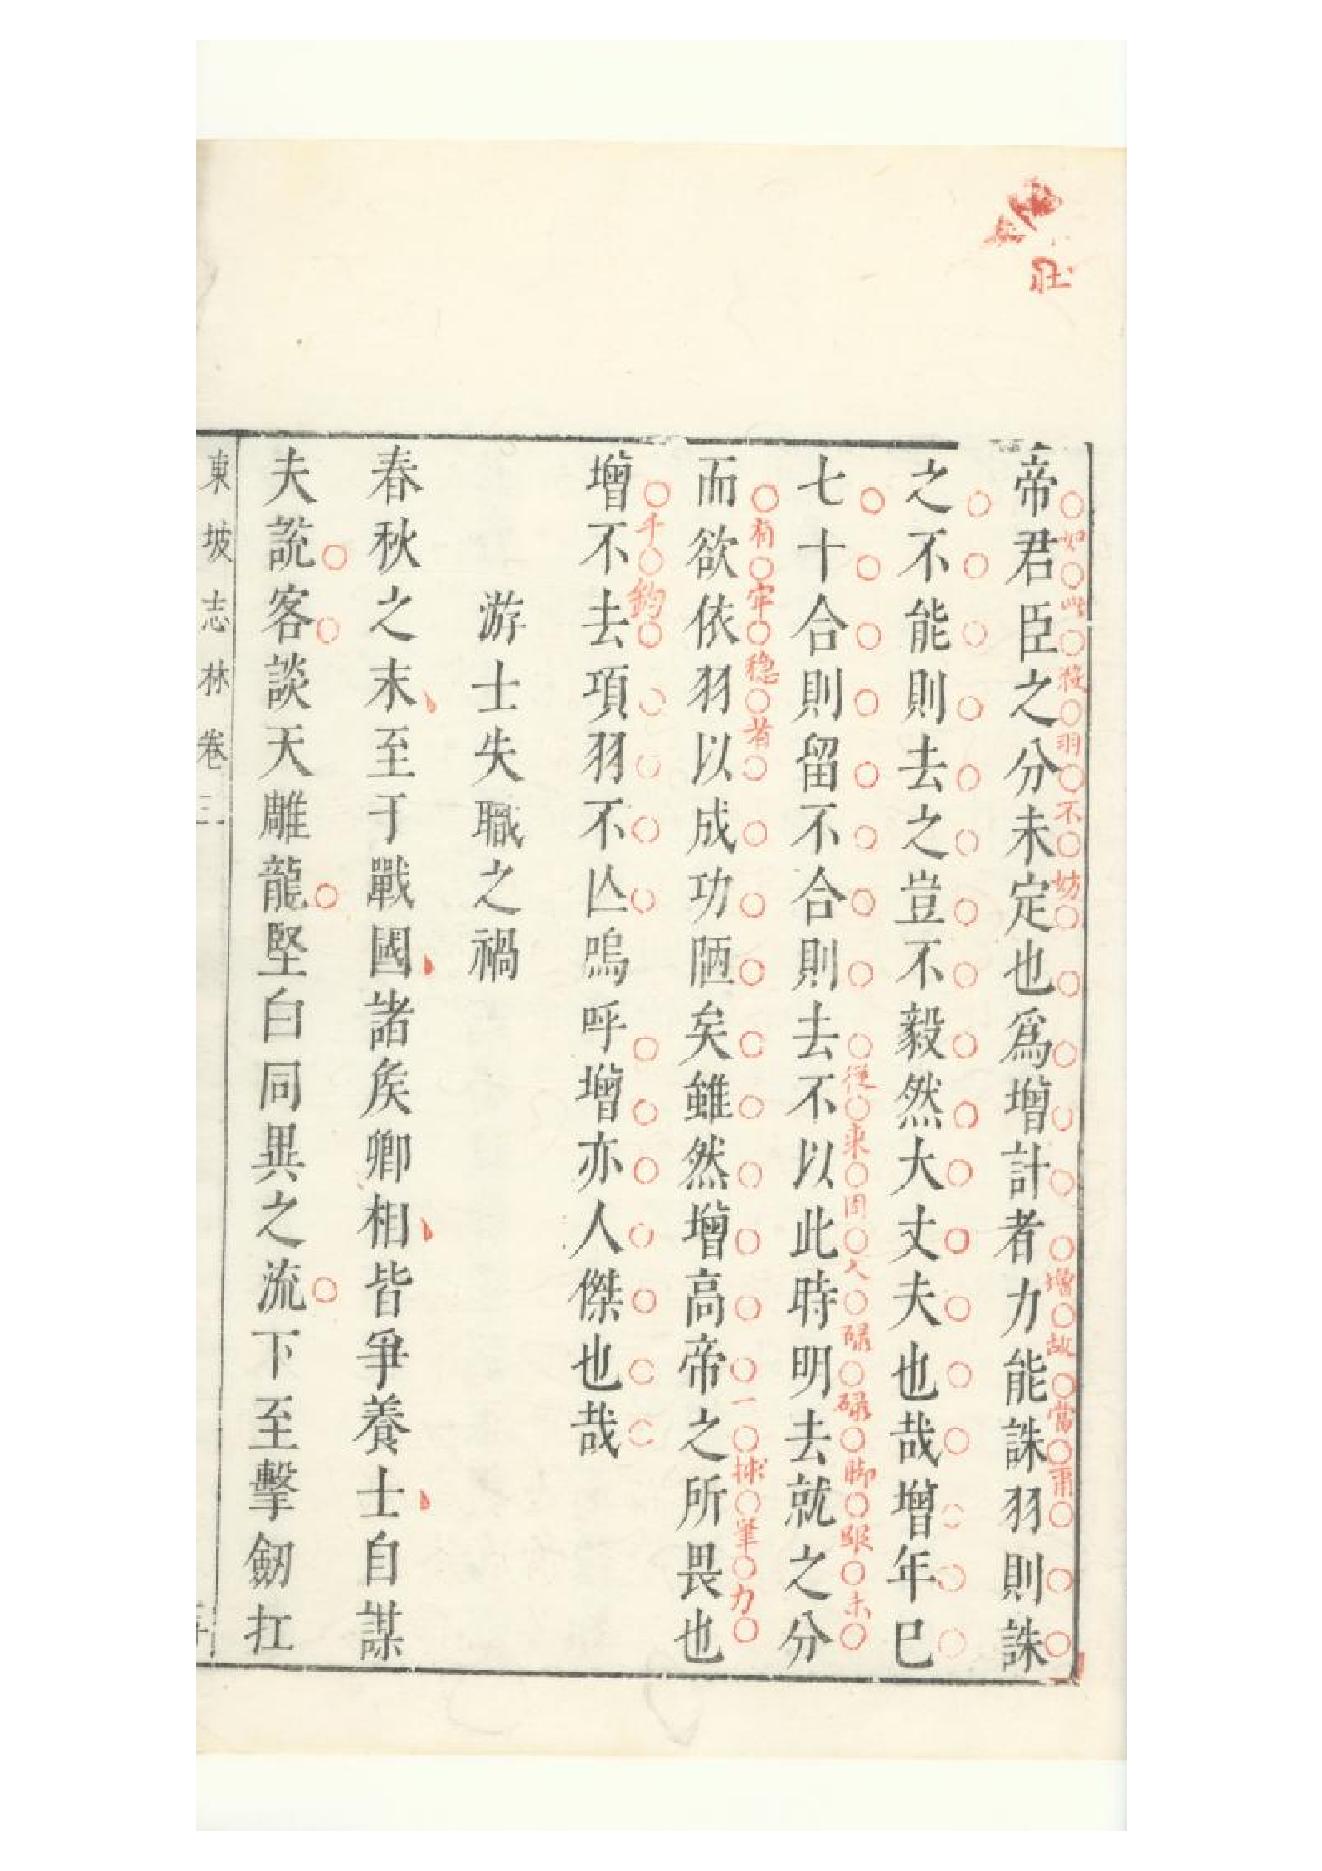 帝君臣之分未定也爲增計者力能誅羽則誅
如此殺羽不妨
增故當肅
之不能則去之豈不毅然大丈夫也哉增年已
七十合則留不合則去不以此時明去就之分
從來固人碌碌脚眼未
而欲依羽以成功陋矣雖然增高帝之所畏也
有牢穩者
一抹筆力
增不去項羽不亾嗚呼增亦人傑也哉
千鈞
游士失職之禍
春秋之末至于戰國諸矦卿相皆爭養士自謀
夫說客談天雕龍堅白同異之流下至擊劒扛
東坡志林卷三